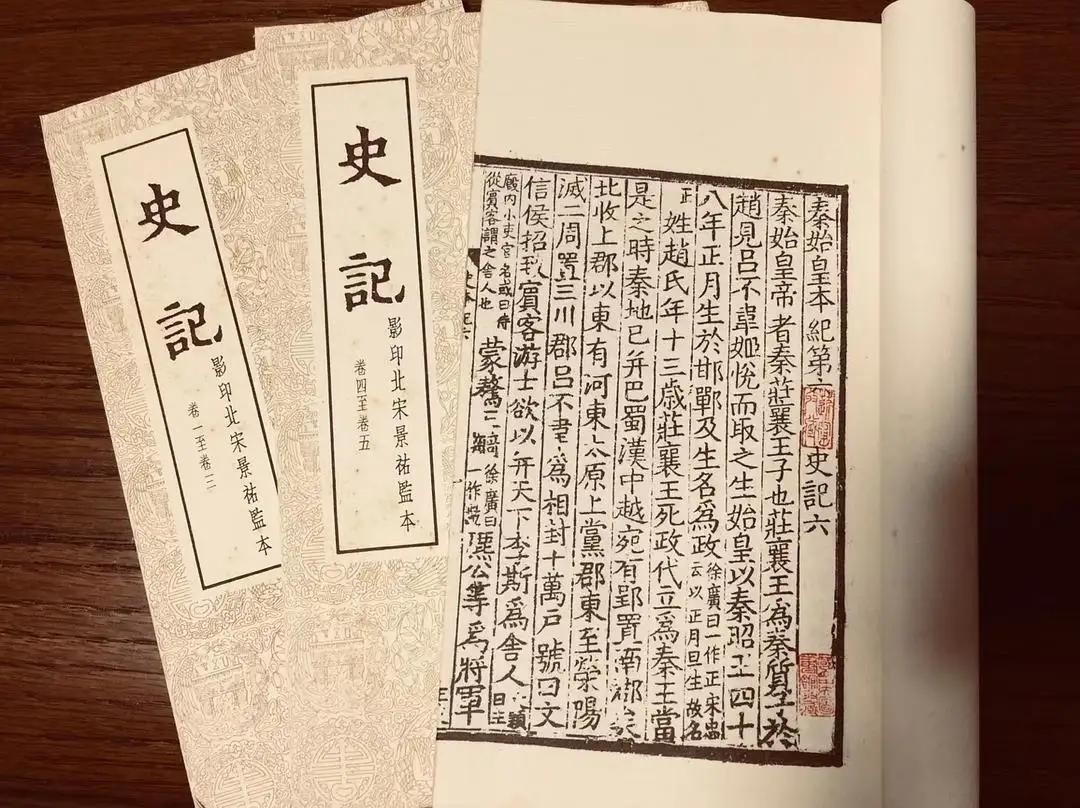 史記
影印北宋景祐監本
卷一至卷三
史記
影印北宋景祐監本
卷四至卷五
秦始皇本紀第 史記六
秦始皇帝者秦莊襄王子也莊襄王爲秦質子於
趙見呂不韋姬悅而取之生始皇以秦昭王四十
八年正月生於邯鄲及生名爲政徐廣曰一作正宋忠云以正月旦生故名
正姓趙氏年十三歲莊襄王死政代立爲秦王當
是之時秦地已并巴蜀漢中越宛有郢置南郡矣
北收上郡以東有河東太原上黨郡東至滎陽
滅二周置三川郡呂不韋爲相封十萬戶號曰文
信侯招致賓客游士欲以并天下李斯爲舍人曰主
廐内小吏官名或曰侍從賓客謂之舍人也蒙驁王齮徐廣曰一作公等爲將軍